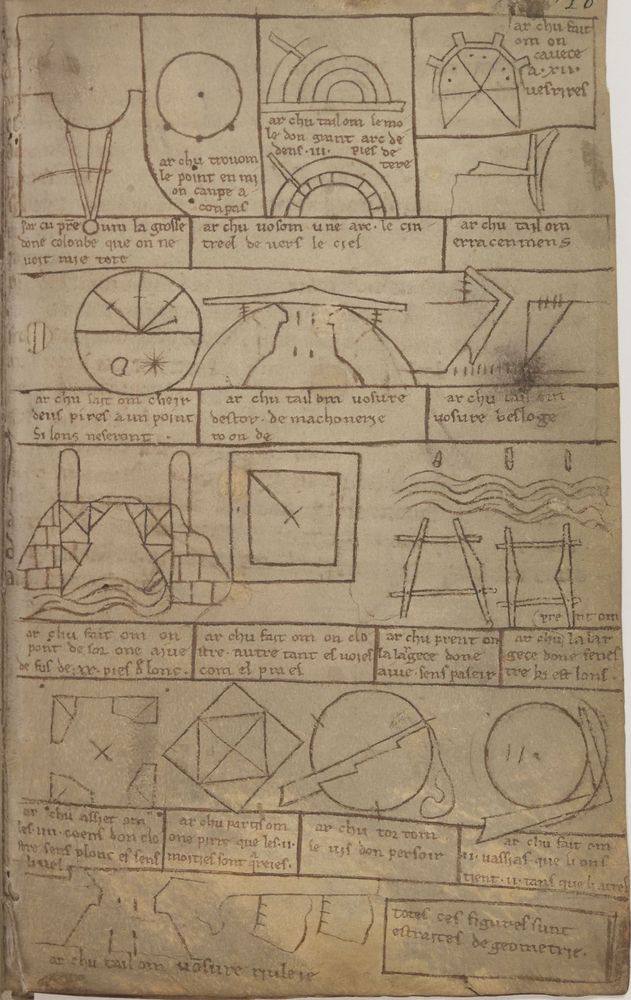 par cu prent om la grosse
done colonbe que on ne
voit mie tote
ar chu trouom
le point en mi
on canpe a
conpas
ar chu tail om le mo
le don grant arc de
dens .iii. pies de
tere
ar chu vosom une arc. le cin
treel de vers le ciel
ar chu fait
om on
cavece
a .xii.
vesrires
ar chu tail om
erracenmens
ar chu fait om cheir
deus pires a un point
si lons neseront
ar chu tail om vosure
destor. de machonerie
roonde
ar chu tail om
vosure besloge
ar chu fait om on
pont de sor one aive
de fus de .xx. pies d lonc.
ar chu fait om on clo
istre. autre tant es voies
com el praes
ar chu prent on
la largece done
aive. sens paseir
prent om
ar chu la lar
gece done fenes
tre ki est lons.
ar chu assiet om
les .iiii. coens don clo
tre sens plonc et sens
livel
ar chu partis om
one pirre que les .ii.
moitiés sont qreies.
ar chu tor tom
le vis don persoir
ar chu fait om
.ii. vassias que li ons
tient .ii. tans que li atres
ar chu tail om vosure riuleie
totes ces figures sunt
estraites de geometrie.